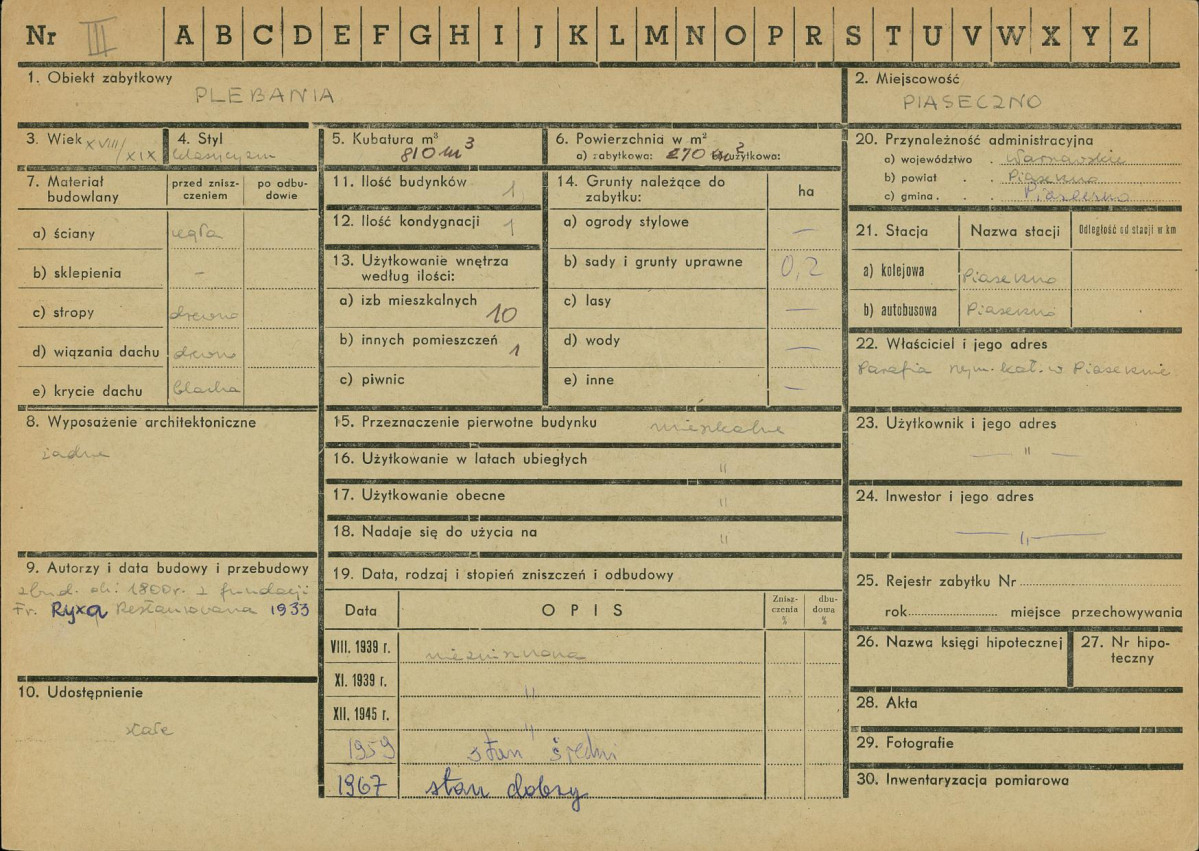 Nr III A B C D E F G H I J K L M N O P R S T U V W X Y Z
1. Obiekt zabytkowy
PLEBANIA
2. Miejscowość
PIASECZNO
3. Wiek XVIII/XIX
4. Styl
klasycyzm
5. Kubatura m³
810 m³
6. Powierzchnia w m²
a) zabytkowa: 270 m² użytkowa:
7. Materiał budowlany
przed znisz-
czeniem
po odbu-
dowie
a) ściany cegła
b) sklepienia –
c) stropy drewno
d) wiązania dachu drewno
e) krycie dachu blacha
8. Wyposażenie architektoniczne
żadne
9. Autorzy i data budowy i przebudowy
zbud. ok. 1800 r. z fundacji
Fr. Ryxa Restaurowana 1933
10. Udostępnienie
stałe
11. Ilość budynków 1
12. Ilość kondygnacji 1
13. Użytkowanie wnętrza
według ilości:
a) izb mieszkalnych 10
b) innych pomieszczeń 1
c) piwnic
14. Grunty należące do
zabytku:
ha
a) ogrody stylowe –
b) sady i grunty uprawne 0,2
c) lasy –
d) wody –
e) inne –
15. Przeznaczenie pierwotne budynku mieszkalne
16. Użytkowanie w latach ubiegłych "
17. Użytkowanie obecne "
18. Nadaje się do użycia na "
19. Data, rodzaj i stopień zniszczeń i odbudowy
Data
OPIS
Znisz-
czenia
%
dbu-
doma
%
VIII. 1939 r. niezniszczona
XI. 1939 r. "
XII. 1945 r. "
1959 stan średni
1967 stan dobry
20. Przynależność administracyjna
a) województwo . Warszawskie
b) powiat . . Piaseczno
c) gmina . . . Piaseczno
21. Stacja
Nazwa stacji
Odległość od stacji w km
a) kolejowa Piaseczno
b) autobusowa Piaseczno
22. Właściciel i jego adres
Parafia rzym. kat. w Piasecznie
23. Użytkownik i jego adres
— " —
24. Inwestor i jego adres
— " —
25. Rejestr zabytku Nr
rok miejsce przechowywania
26. Nazwa księgi hipotecznej
27. Nr hipo-
teczny
28. Akta
29. Fotografie
30. Inwentaryzacja pomiarowa